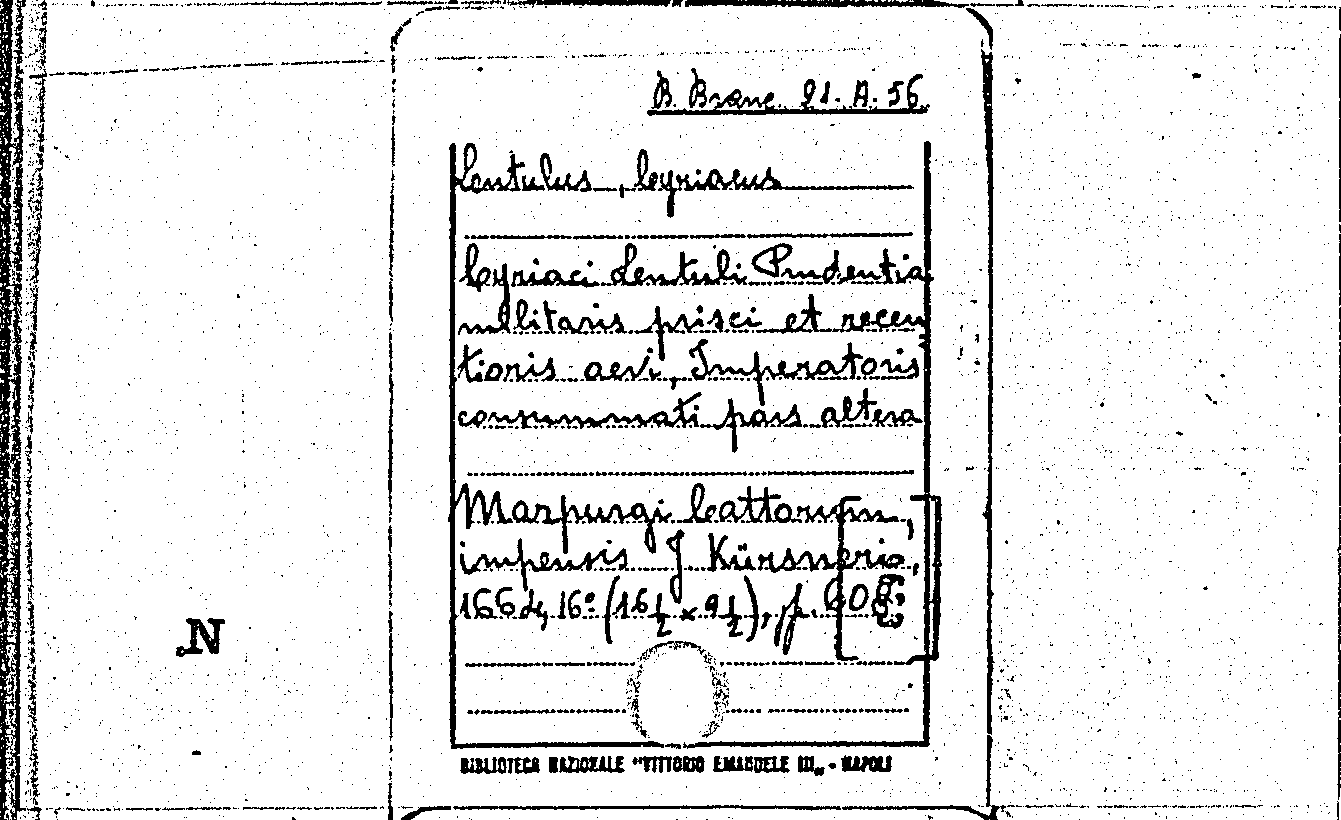 B. Branc. 91. A. 56
Lentulus, Cyriacus
Cyriaci Lentuli Prudentia
militaris prisci et recen
tioris aevi, Imperatoris
consummati pars altera
Marpurgi Cattorum,
impensis J Kürsneri,
1664, 16º (16½ × 9½), pp.
N
BIBLIOTECA NAZIONALE "VITTORIO EMANUELE III" - NAPOLI